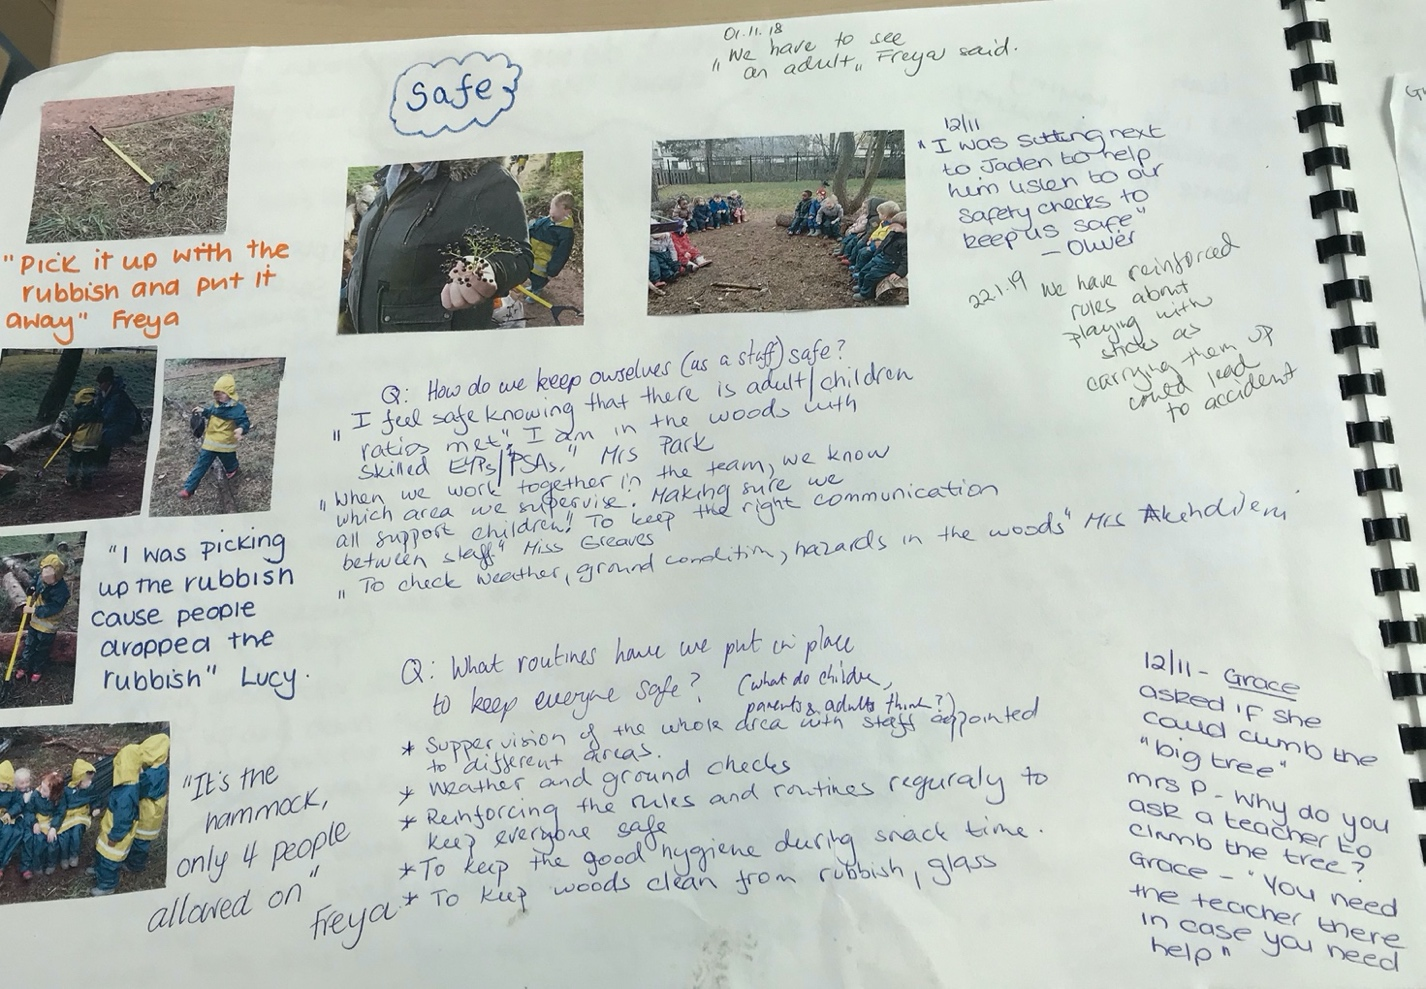 01.11.18
"We have to see
an adult" Freya said.
Safe
"Pick it up with the
rubbish and put it
away" Freya
12/11
"I was sitting next
to Jaden to help
him listen to our
safety checks to
keep us safe"
- Oliver
22.1.19 We have reinforced
rules about
playing with
sticks as
carrying them up
could lead
to accident
Q: How do we keep ourselves (as a staff) safe?
"I feel safe knowing that there is adult/children
ratios met". I am in the woods with
skilled EYPs/PSAs." Mrs Park
"When we work together in the team, we know
which area we supervise. Making sure we
all support children! To keep the right communication
between staff" Miss Greaves
"To check weather, ground condition, hazards in the woods" Mrs
"I was picking
up the rubbish
cause people
dropped the
rubbish" Lucy.
Q: What routines have we put in place
to keep everyone safe? (What do children,
parents & adults think?)
* Suppervision of the whole area with staff appointed
to different areas.
* Weather and ground checks
* Reinforcing the rules and routines reguraly to
keep everyone safe
* To keep the good hygiene during snack time.
* To keep woods clean from rubbish, glass
"It's the
hammock,
only 4 people
allowed on"
Freya
12/11 - Grace
asked if she
could climb the
"big tree"
Mrs P - Why do you
ask a teacher to
climb the tree?
Grace - "You need
the teacher there
in case you need
help"